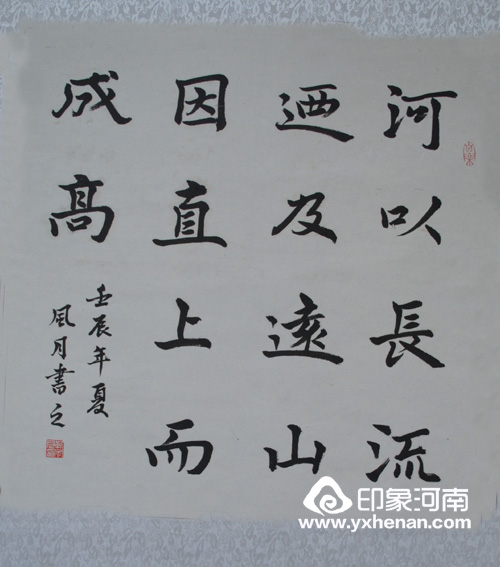 河以長流
迺及遠山
因直上而
成高
壬辰年夏
風月書之
印象河南
www.yxhenan.com